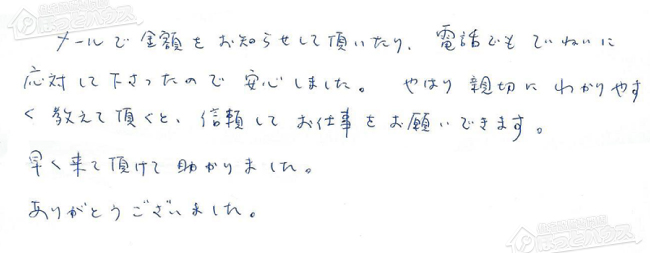 メールで金額をお知らせして頂いたり、電話でもていねいに
応対して下さったので安心しました。 やはり親切にわかりやす
く教えて頂くと、信頼してお仕事をお願いできます。
早く来て頂けて助かりました。
ありがとうございました。